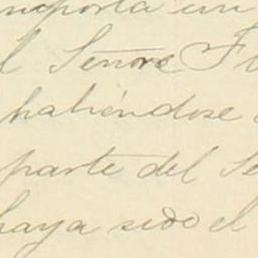 importa un
l Señor F
habiéndose
parte del Se
haya sido el